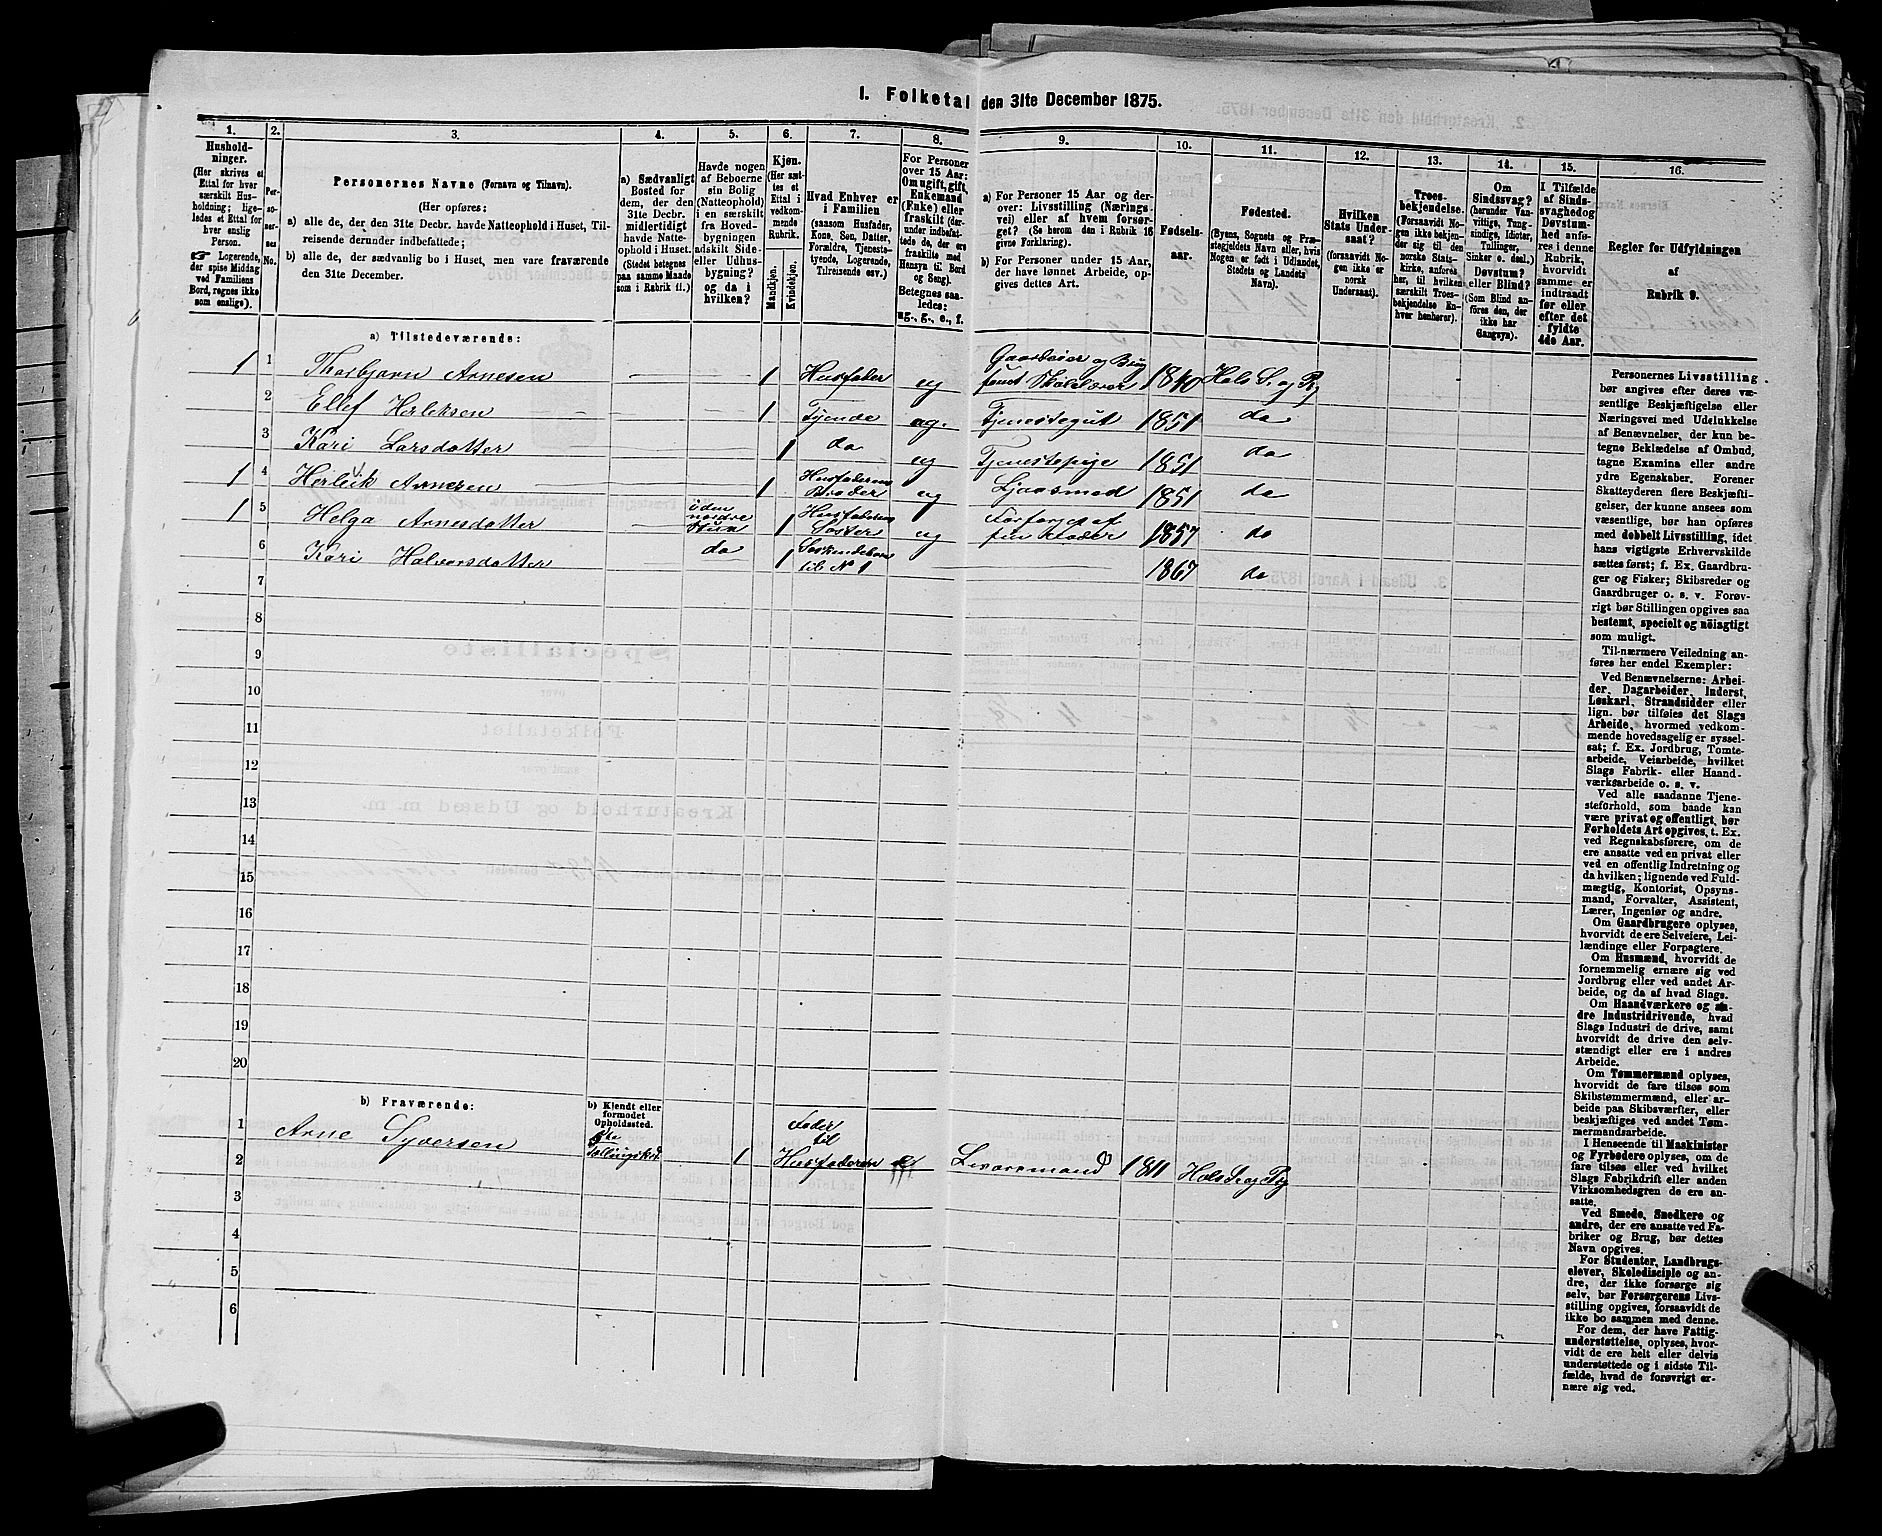 1. Folketal den 31te December 1875.
1. 2. 3. 4. 5. 6. 7. 8. 9. 10. 11. 12. 13. 14. 15. 16.
Hushold-
ninger.
(Her skrives et
Ettal for hver
særskilt Hus-
holdning; lige-
ledes et Ettal for
hver enslig
Person.
☞ Logerende,
der spise Middag
ved Familiens
Bord, regnes ikke
som enslige).
Personernes No.
Personernes Navne (Fornavn og Tilnavn).
(Her opføres;
a) alle de, der den 31te Decbr. havde Natteophold i Huset, Til-
reisende derunder indbefattede;
b) alle de, der sædvanlig bo i Huset, men vare fraværende
den 31te December.
a) Sædvanligt
Bosted for
dem, der den
31te Decbr.
midlertidigt
havde Natte-
ophold i Huset.
(Stedet betegnes
paa samme Maade
som i Rubrik 11.)
Havde nogen
af Beboerne
sin Bolig
(Natteophold)
i en særskilt
fra Hoved-
bygningen
adskilt Side-
eller Udhus-
bygning?
og da i
hvilken?
Kjøn.
(Her sæt-
tes et
Ettal i
vedkom-
mende
Rubrik.
Mandkjøn.
Kvindekjøn.
Hvad Enhver er
i Familien
(saasom Husfader,
Kone, Søn, Datter,
Forældre, Tjeneste-
tyende, Logerende,
Tilreisende osv.)
For Personer
over 15 Aar:
Om ugift, gift,
Enkemand
(Enke) eller
fraskilt (der-
under indbefat-
tede de, der ere
fraskilte med
Hensyn til Bord
og Seng).
Betegnes saa-
ledes:
ug., g., e., f.
a) For Personer 15 Aar og der-
over: Livsstilling (Nærings-
vei) eller af hvem forsør-
get? (Se herom den i Rubrik 16
givne Forklaring).
b) For Personer under 15 Aar,
der have lønnet Arbeide, op-
gives dettes Art.
Fødsels-
aar.
Fødested.
(Byens, Sognets og Præ-
stegjeldets Navn eller, hvis
Nogen er født i Udlandet,
Stedets og Landets
Navn).
Hvilken
Stats Under-
saat?
(forsaavidt No-
gen ikke er
norsk
Undersaat).
Troes-
bekjendelse.
(Forsaavidt No-
gen ikke bekjen-
der sig til den
norske Stats-
kirke, anføres
her, til hvilken
særskilt Troes-
bekjendelse En-
hver henhører).
Om
Sindssvag?
(herunder Van-
vittige, Tung-
sindige, Idioter,
Tullinger,
Sinker o. desl.)
Døvstum?
eller Blind?
(Som Blind an-
føres den, der
ikke har
Gangsyn).
I Tilfælde
af Sinds-
svaghed og
Døvstum-
hed anfø-
res i denne
Rubrik,
hvorvidt
samme er
indtraadt
før eller
efter det
fyldte
4de Aar.
Regler for Udfyldningen
af
Rubrik 9.
a) Tilstedeværende:
1 1 Thorbjørn Arnesen 1 Husfader ug Gaardeier og 1840 Hols S. og Pg
2 Ellef Herleksen 1 Tjende ug. Tjenestegut 1851 do
3 Kari Larsdatter 1 do ug Tjenestepige 1851 do
1 4 Herleik Arnesen 1 Husfaderens Broder ug 1851 do
1 5 Helga Arnesdatter i den nordre Stue 1 Husfaderens Søster ug Forsørges af sin Fader 1857 do
6 Kari Halvorsdatter do 1 Søskendebarn til No 1 1867 do
7
8
9
10
11
12
13
14
15
16
17
18
19
20
b) Fraværende:
b) Kjendt eller
formodet
Opholdssted.
1 Arne Syversen 1 Fader til Husfaderen 1811 Hols S. og Pg
2
3
4
5
6
Personernes Livsstilling
bør angives efter deres væ-
sentlige Beskjæftigelse eller
Næringsvei med Udelukkelse
af Benævnelser, der kun be-
tegne Beklædelse af Ombud,
tagne Examina eller andre
ydre Egenskaber. Forener
Skatteyderen flere Beskjæfti-
gelser, der kunne ansees som
væsentlige, bør han opføres
med dobbelt Livsstilling, idet
hans vigtigste Erhvervskilde
sættes først; f. Ex. Gaardbru-
ger og Fisker; Skibsreder og
Gaardbruger o. s. v. Forøv-
rigt bør Stillingen opgives saa
bestemt, specielt og nöiagtigt
som muligt.
Til nærmere Veiledning an-
føres her endel Exempler:
Ved Benævnelserne: Arbei-
der, Dagarbeider, Inderst,
Løskarl, Strandsidder eller
lign. bør tilføies det Slags
Arbeide, hvormed vedkom-
mende hovedsagelig er syssel-
sat; f. Ex. Jordbrug, Tomte-
arbeide, Veiarbeide, hvilket
Slags Fabrik- eller Haand-
værksarbeide o. s. v.
Ved alle saadanne Tjene-
steforhold, som baade kan
være privat og offentligt, bør
Forholdets Art opgives, t. Ex.
ved Regnskabsførere, om de
ere ansatte ved en privat eller
ved en offentlig Indretning og
da hvilken; lignende ved Fuld-
mægtig, Kontorist, Opsyns-
mand, Forvalter, Assistent,
Lærer, Ingeniør og andre.
Om Gaardbrugere oplyses,
hvorvidt de ere Selveiere, Lei-
lændinge eller Forpagtere.
Om Husmænd, hvorvidt de
fornemmelig ernære sig ved
Jordbrug eller ved andet Ar-
beide, og da af hvad Slags.
Om Haandværkere og an-
dre Industridrivende, hvad
Slags Industri de drive, samt
hvorvidt de drive den selv-
stændigt eller ere i andres
Arbeide.
Om Tømmermænd oplyses,
hvorvidt de fare tilsøs som
Skibstømmermænd, eller ar-
beide paa Skibsværfter, eller
beskjæftiges ved andet Tøm-
mermandsarbeide.
I Henseende til Maskinister
og Fyrbødere oplyses, om de
fare tilsøs eller ved hvilket
Slags Fabrikdrift eller anden
Virksomhedsgren de ere an-
satte.
Ved Smede, Snedkere og
andre, der ere ansatte ved Fa-
briker og Brug, bør dettes
Navn opgives.
For Studenter, Landbrugs-
elever, Skoledisciple og an-
dre, der ikke forsørge sig
selv, bør Forsørgerens Livs-
stilling opgives, forsaavidt de
ikke bo sammen med denne.
For dem, der have Fattig-
understøttelse, oplyses, hvor-
vidt de ere helt eller delvis
understøttede og i sidste Til-
fælde, hvad de forøvrigt er-
nære sig ved.